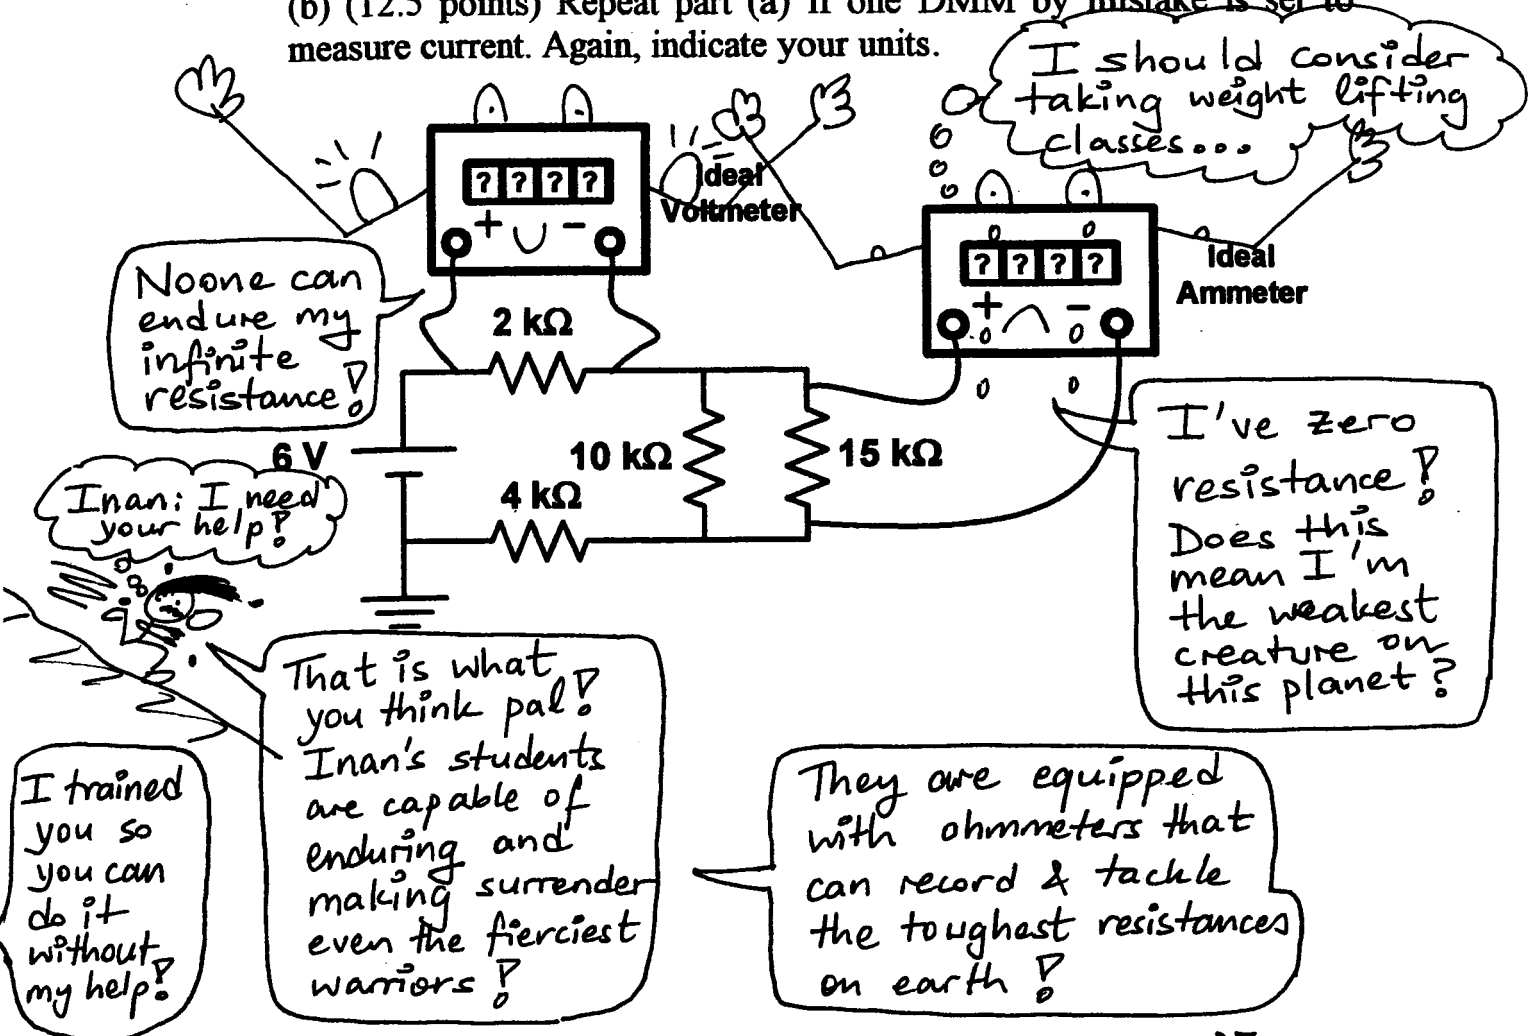 (b) (12.5 points) Repeat part (a) if one DMM by mistake is set to
measure current. Again, indicate your units.
I should consider
taking weight lifting
classes...
? ? ? ?
+ -
Ideal
Voltmeter
? ? ? ?
+ -
Ideal
Ammeter
Noone can
endure my
infinite
resistance!
2 kΩ
6 V
10 kΩ
15 kΩ
4 kΩ
I've zero
resistance!
Does this
mean I'm
the weakest
creature on
this planet?
Inan: I need
your help!
That is what
you think pal!
Inan's students
are capable of
enduring and
making surrender
even the fierciest
warriors!
I trained
you so
you can
do it
without
my help!
They are equipped
with ohmmeters that
can record & tackle
the toughest resistances
on earth!